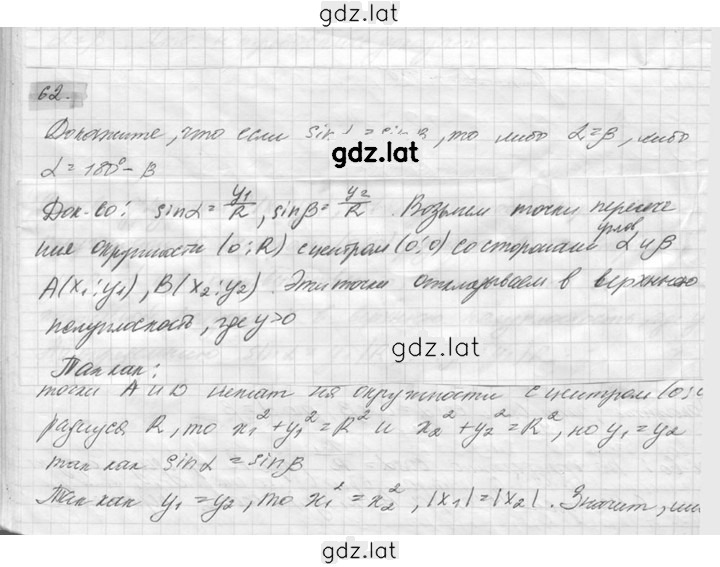 gdz.lat
62.
Докажите, что если sinα = sinβ, то либо α=β, либо
gdz.lat
α = 180° - β
Док-во: sinα = y₁/R, sinβ = y₂/R. Возьмем точки пересече
ние окружности (O; R) с центром (0; 0) со сторонами углов α и β
A(x₁; y₁), B(x₂; y₂). Эти точки откладываем в верхнюю
полуплоскость, где y>0
gdz.lat
Так как:
точки A и B лежат на окружности с центром (0;
радиуса R, то x₁² + y₁² = R² и x₂² + y₂² = R², но y₁ = y₂
так как sinα = sinβ
Так как y₁ = y₂, то x₁² = x₂², |x₁| = |x₂|. Значит,
gdz.lat